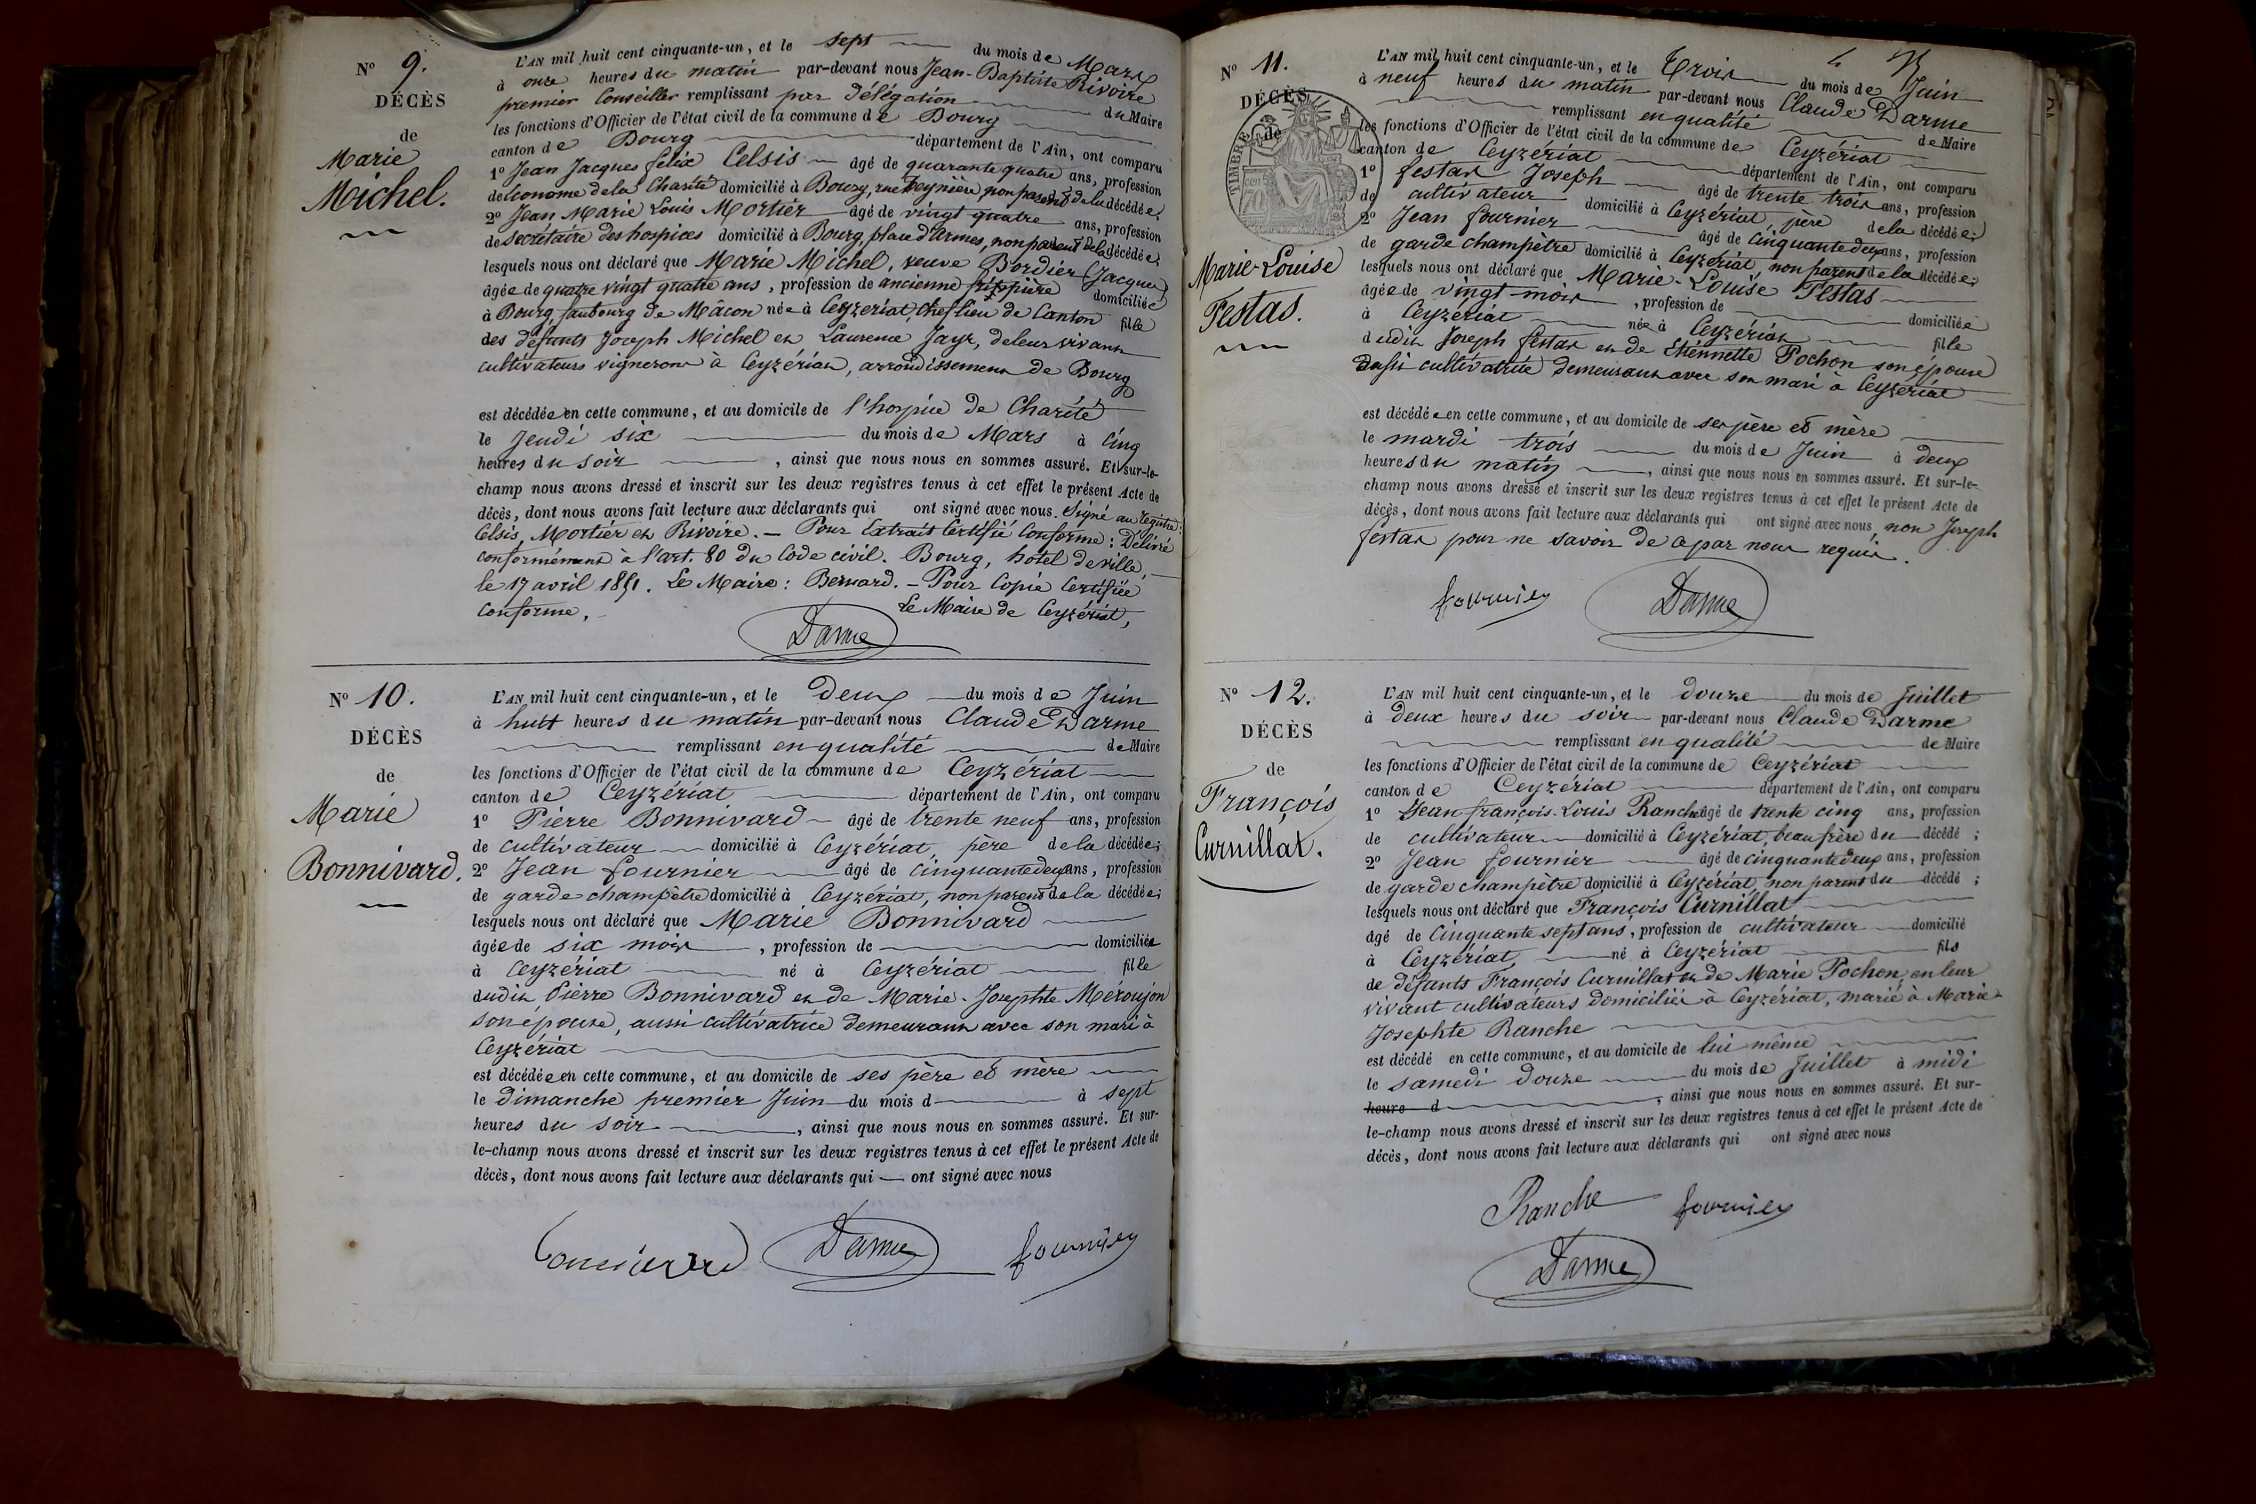 Nº 9.
DÉCÈS
de
Marie
Michel.
L'AN mil huit cent cinquante-un, et le sept du mois de Mars
à onze heures du matin par-devant nous Jean-Baptiste Rivoire
premier Conseiller remplissant par délégation du Maire
les fonctions d'Officier de l'état civil de la commune de Bourg
canton de Bourg département de l'Ain, ont comparu
1º Jean Jacques félix Celsis âgé de quarante quatre ans, profession
de Econome de la Charité domicilié à Bourg, rue Teynière, non parent de la décédée;
2º Jean Marie Louis Mortier âgé de vingt quatre ans, profession
de secrétaire des hospices domicilié à Bourg, place d'Armes, non parent de la décédée;
lesquels nous ont déclaré que Marie Michel, veuve Bordier (Jacques)
âgée de quatre vingt quatre ans, profession de ancienne fripière domiciliée
à Bourg, faubourg de Mâcon née à Ceyzériat, chef lieu de Canton fille
des défunts Joseph Michel et Laurence Jayr, de leur vivant
cultivateurs vignerons à Ceyzériat, arrondissement de Bourg
est décédée en cette commune, et au domicile de l'hospice de Charité
le Jeudi six du mois de Mars à cinq
heures du soir, ainsi que nous nous en sommes assuré. Et sur-le-
champ nous avons dressé et inscrit sur les deux registres tenus à cet effet le présent Acte de
décès, dont nous avons fait lecture aux déclarants qui ont signé avec nous. Signé au registre:
Celsis, Mortier et Rivoire. — Pour Extrait Certifié Conforme: Délivré
conformément à l'art. 80 du Code civil. Bourg, hôtel de ville,
le 17 avril 1851. Le Maire: Bernard. — Pour Copie Certifiée
conforme,
Le Maire de Ceyzériat,
Darme
Nº 10.
DÉCÈS
de
Marie
Bonnivard.
L'AN mil huit cent cinquante-un, et le deux du mois de Juin
à huit heures du matin par-devant nous Claude Darme
remplissant en qualité de Maire
les fonctions d'Officier de l'état civil de la commune de Ceyzériat
canton de Ceyzériat département de l'Ain, ont comparu
1º Pierre Bonnivard âgé de trente neuf ans, profession
de cultivateur domicilié à Ceyzériat, père de la décédée;
2º Jean fournier âgé de cinquante deux ans, profession
de garde champêtre domicilié à Ceyzériat, non parent de la décédée;
lesquels nous ont déclaré que Marie Bonnivard
âgée de six mois, profession de domiciliée
à Ceyzériat né à Ceyzériat fille
dudit Pierre Bonnivard et de Marie-Josephte Méroujon
son épouse, aussi cultivatrice demeurant avec son mari à
Ceyzériat
est décédée en cette commune, et au domicile de ses père et mère
le dimanche premier Juin du mois d à sept
heures du soir, ainsi que nous nous en sommes assuré. Et sur-
le-champ nous avons dressé et inscrit sur les deux registres tenus à cet effet le présent Acte de
décès, dont nous avons fait lecture aux déclarants qui — ont signé avec nous
Bonnivard Darme fournier
4
Nº 11.
DÉCÈS
de
TIMBRE
Marie-Louise
Festas.
L'AN mil huit cent cinquante-un, et le Trois du mois de Juin
à neuf heures du matin par-devant nous Claude Darme
remplissant en qualité de Maire
les fonctions d'Officier de l'état civil de la commune de Ceyzériat
canton de Ceyzériat département de l'Ain, ont comparu
1º festas Joseph âgé de trente trois ans, profession
de cultivateur domicilié à Ceyzériat, père de la décédée;
2º Jean fournier âgé de cinquante deux ans, profession
de garde champêtre domicilié à Ceyzériat, non parent de la décédée;
lesquels nous ont déclaré que Marie-Louise Festas
âgée de vingt mois, profession de domiciliée
à Ceyzériat née à Ceyzériat fille
dudit Joseph festas et de Etiennette Pochon son épouse
aussi cultivatrice demeurant avec son mari à Ceyzériat
est décédée en cette commune, et au domicile de ses père et mère
le mardi trois du mois de Juin à deux
heures du matin, ainsi que nous nous en sommes assuré. Et sur-le-
champ nous avons dressé et inscrit sur les deux registres tenus à cet effet le présent Acte de
décès, dont nous avons fait lecture aux déclarants qui ont signé avec nous, non Joseph
festas pour ne savoir de ce par nous requis.
fournier Darme
Nº 12.
DÉCÈS
de
François
Curnillat.
L'AN mil huit cent cinquante-un, et le douze du mois de Juillet
à deux heures du soir par-devant nous Claude Darme
remplissant en qualité de Maire
les fonctions d'Officier de l'état civil de la commune de Ceyzériat
canton de Ceyzériat département de l'Ain, ont comparu
1º Jean françois-Louis Ranche âgé de trente cinq ans, profession
de cultivateur domicilié à Ceyzériat, beau frère du décédé;
2º Jean fournier âgé de cinquante deux ans, profession
de garde champêtre domicilié à Ceyzériat, non parent du décédé;
lesquels nous ont déclaré que François Curnillat
âgé de Cinquante sept ans, profession de cultivateur domicilié
à Ceyzériat, né à Ceyzériat fils
de défunts François Curnillat et de Marie Pochon en leur
vivant cultivateurs domiciliés à Ceyzériat, marié à Marie-
Josephte Ranche
est décédé en cette commune, et au domicile de lui même
le samedi douze du mois de Juillet à midi
heure d, ainsi que nous nous en sommes assuré. Et sur-
le-champ nous avons dressé et inscrit sur les deux registres tenus à cet effet le présent Acte de
décès, dont nous avons fait lecture aux déclarants qui ont signé avec nous
Ranche fournier
Darme